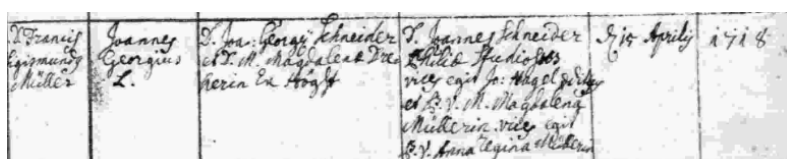 D. Francis
Egismund9
Müller
Joannes
Georgius
L.
D. Joa: Georgy Schneider
et D. M. Magdalena Dre
herin Ex Höghst
D. Joannes Schneider
Philiæ Studiosus
vices egit Jo: Nagel
et P. V. M. Magdalena
Müllerin vices egit
P. V. Anna Regina Müllerin
d 15 Aprilis
1718